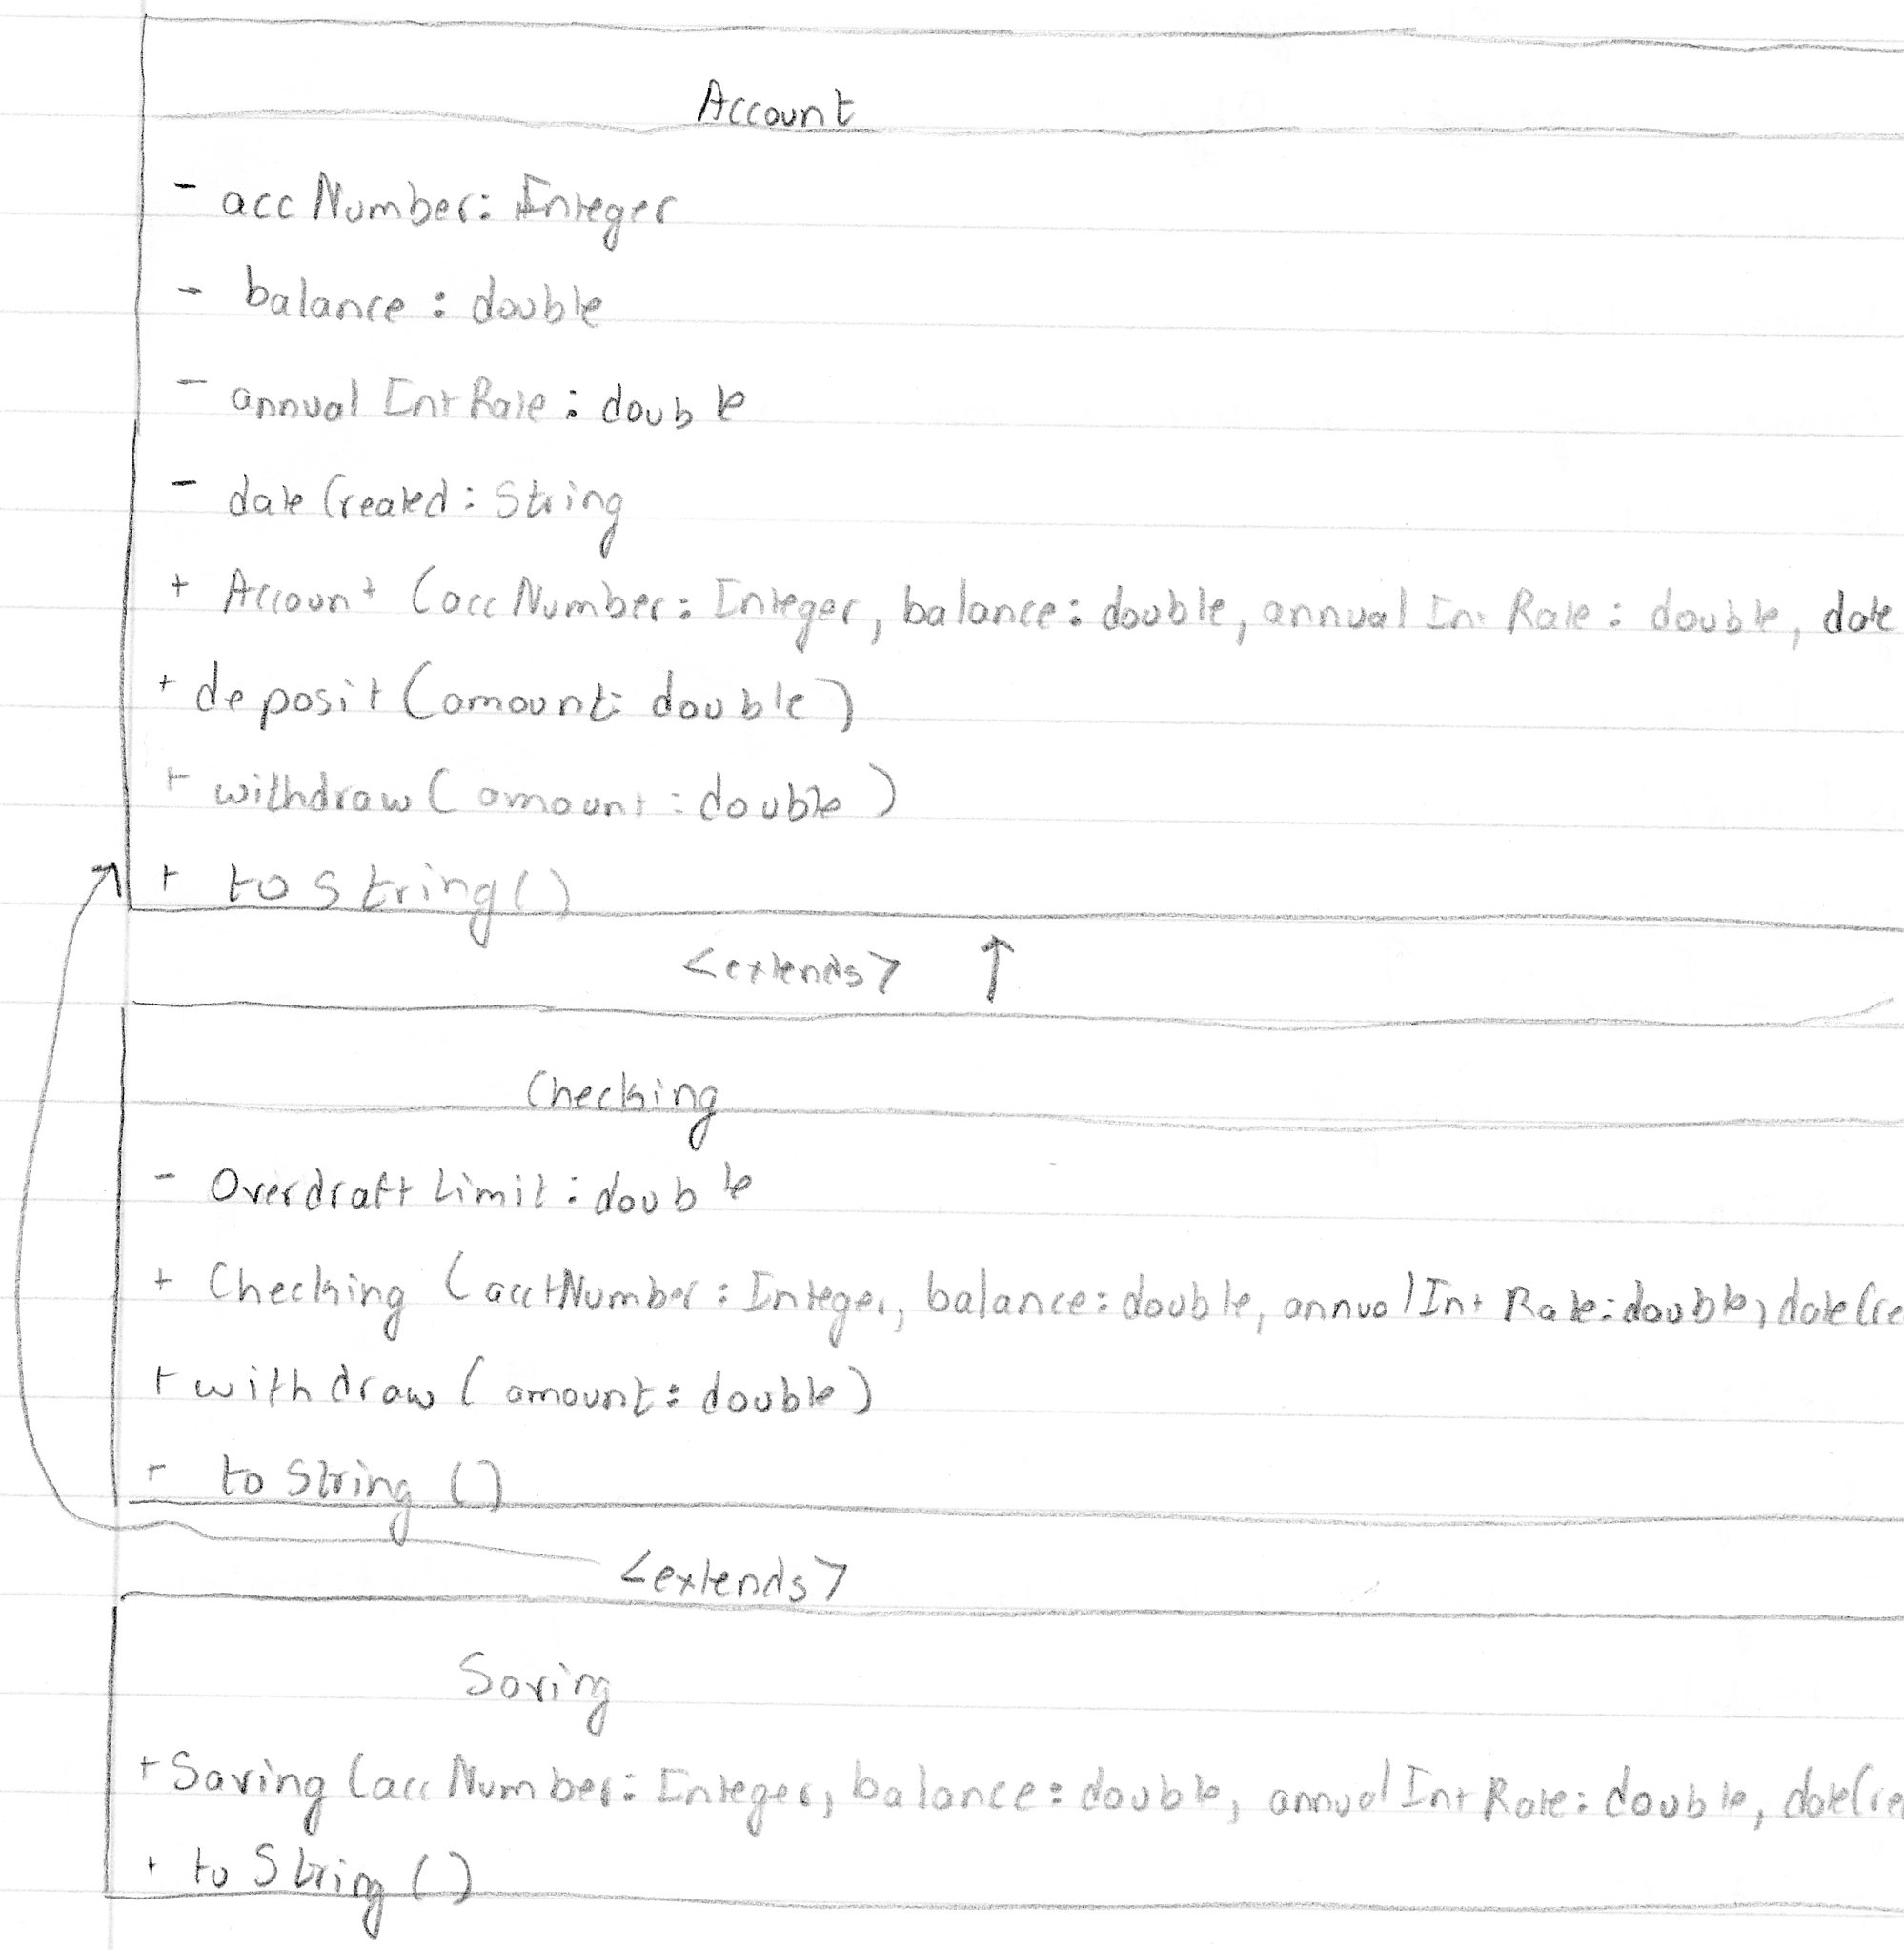 Account
- accNumber: Integer
- balance : double
- annualIntRate : double
- dateCreated : String
+ Account (accNumber: Integer, balance: double, annualIntRate: double, date
+ deposit (amount: double)
+ withdraw (amount : double)
+ toString()
<extends> ↑
Checking
- OverdraftLimit : double
+ Checking (acctNumber: Integer, balance: double, annualIntRate: double, dateCre
+ withdraw (amount: double)
+ toString ()
<extends>
Saving
+ Saving (accNumber: Integer, balance: double, annualIntRate: double, dateCre
+ toString ()